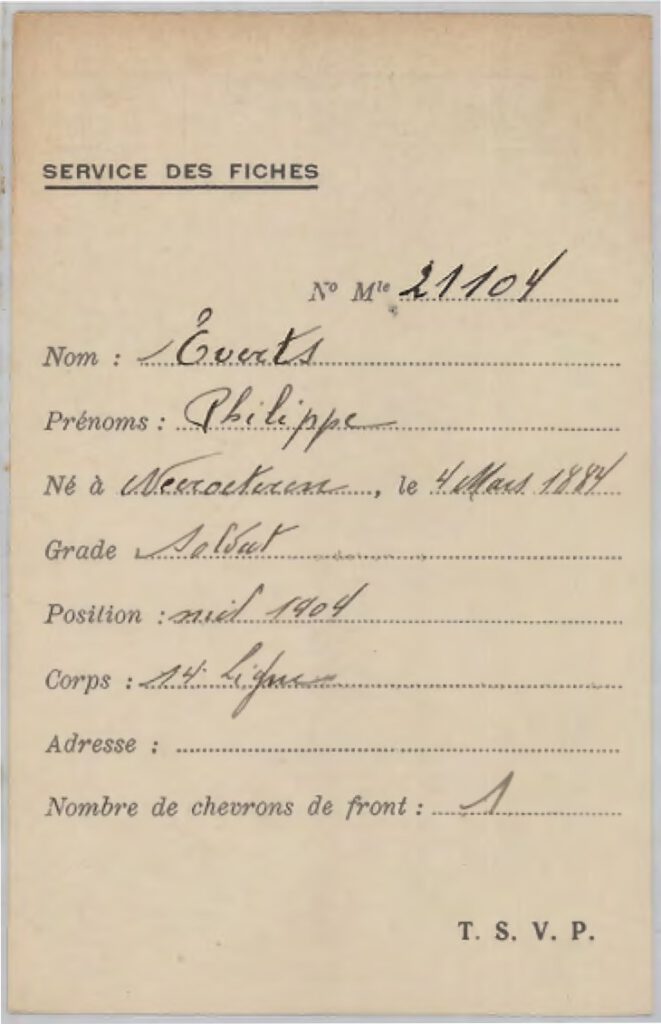 SERVICE DES FICHES
Nº Mle 21104
Nom : Everts
Prénoms : Philippe
Né à Neeroeteren, le 4 Mars 1884
Grade : Soldat
Position : mil 1904
Corps : 14 Ligne
Adresse :
Nombre de chevrons de front : 1
T. S. V. P.